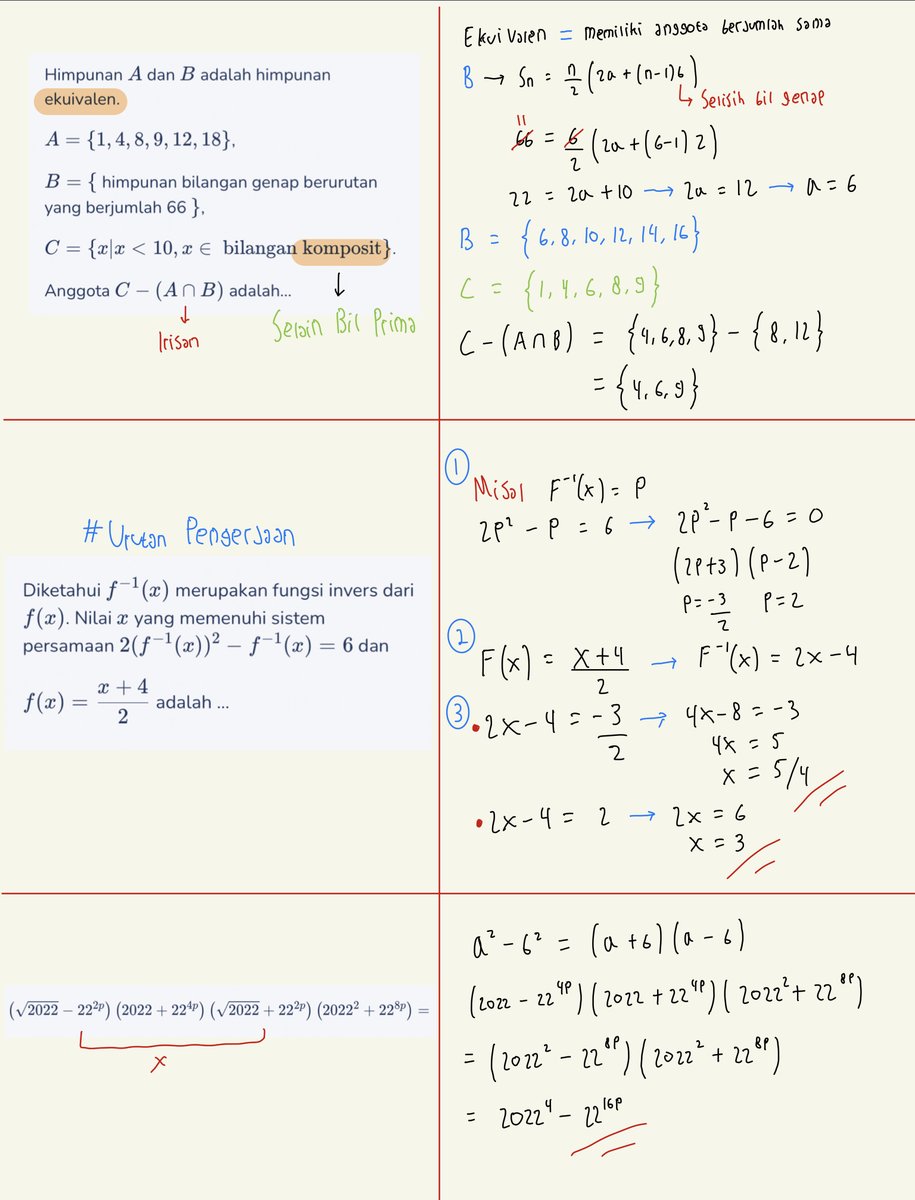 Himpunan A dan B adalah himpunan
ekuivalen.
A = {1, 4, 8, 9, 12, 18},
B = { himpunan bilangan genap berurutan
yang berjumlah 66 },
C = {x|x < 10, x ∈ bilangan komposit}.
Anggota C − (A ∩ B) adalah...
Irisan
Selain Bil Prima
Ekuivalen = memiliki anggota berjumlah sama
B → Sn = n/2 (2a + (n-1)b)
↳ Selisih bil genap
11
66 = 6/2 (2a + (6-1) 2)
22 = 2a + 10 → 2a = 12 → a = 6
B = {6, 8, 10, 12, 14, 16}
C = {1, 4, 6, 8, 9}
C - (A ∩ B) = {4, 6, 8, 9} - {8, 12}
= {4, 6, 9}
# Urutan Pengerjaan
Diketahui f⁻¹(x) merupakan fungsi invers dari
f(x). Nilai x yang memenuhi sistem
persamaan 2(f⁻¹(x))² − f⁻¹(x) = 6 dan
f(x) = (x + 4)/2 adalah ...
①
Misal F⁻¹(x) = P
2P² - P = 6 → 2P² - P - 6 = 0
(2P+3)(P-2)
P = -3/2 P = 2
②
F(x) = (x+4)/2 → F⁻¹(x) = 2x - 4
③
• 2x - 4 = -3/2 → 4x - 8 = -3
4x = 5
x = 5/4
• 2x - 4 = 2 → 2x = 6
x = 3
(√2022 − 22²ᵖ) (2022 + 22⁴ᵖ) (√2022 + 22²ᵖ) (2022² + 22⁸ᵖ) =
x
a² - b² = (a + b)(a - b)
(2022 - 22⁴ᵖ)(2022 + 22⁴ᵖ)(2022² + 22⁸ᵖ)
= (2022² - 22⁸ᵖ)(2022² + 22⁸ᵖ)
= 2022⁴ - 22¹⁶ᵖ